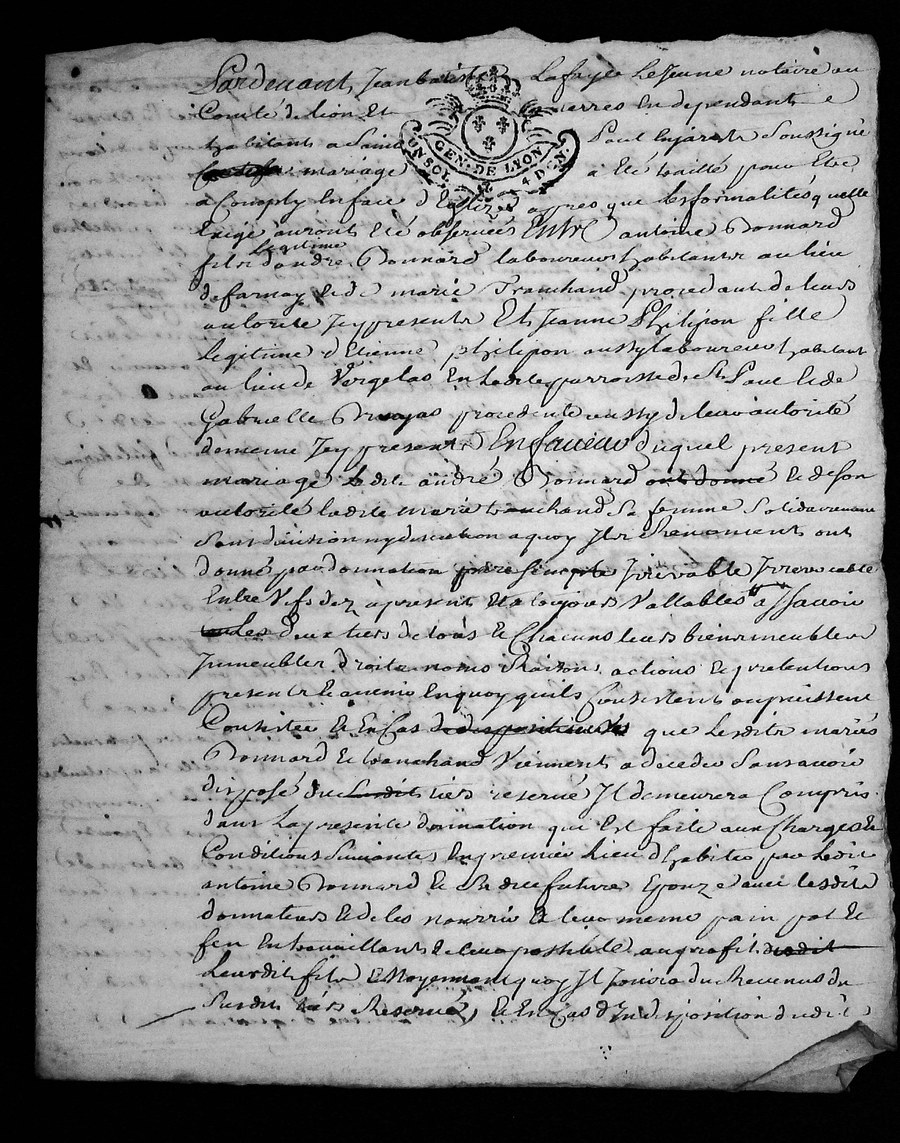 Pardevant, Jean batiste Lafayle Lejeune notaire au
Comté de lion Et terres En dependants &
habitants a Saint Paul Enjarest Soussigné
GEN. DE LYON
UN SOL 4 DEN.
mariage a Eté traitté pour Etre
acomply En face d'Eglize apres que les formalités quelle
Exige auronts Eté observées Entre antoine Bonnard
legitime
fils d'andre Bonnard laboureur habitants au lieu
de farnay Et de marie Tranchand procedant de leurs
autorite Jcy presents Et Jeanne Philipon fille
legitime d'Etienne philipon aussy laboureur habitant
au lieu de Vergelas En ladite parroisse de St Paul Et de
Gabrielle procedente aussy de leur autorité
dememe Jcy presents En faveur duquel present
mariage Ledit andré Bonnard ont donné Et de Son
autorité ladite marie tranchand Sa femme Solidairement
Sans division ny discution a quoy Ils Renoncent ont
donné par donnation pure Simple Irrevocable
Entre Vifs dez a present Et a toujours Vallables a Scavoir
deux tiers de tous Et Chacuns leurs biens meubles
Immeubles droits noms Raisons actions Et pretentions
presents Et avenir En quoy quils Consistent ou puissent
Consister Et En Cas de dispositions que Lesdits mariés
Bonnard Et tranchand Viennent a deceder Sans avoir
disposé du Ledit tiers reservé Il demeurera Compris
dans La presente donnation qui Est faite aux Charges Et
Conditions Suivantes En premier Lieu d'habiter par Ledit
antoine Bonnard Et Sadite future Epouze avec lesdits
donnateurs Et de les nourrir a leur meme pain pot Et
feu En travaillants de leur possible au profit dudit
Leurdit fils Moyennant quoy Il Jouira du Revenus du
Susdit tiers Reservé, Et En Cas d'Indisposition dudit